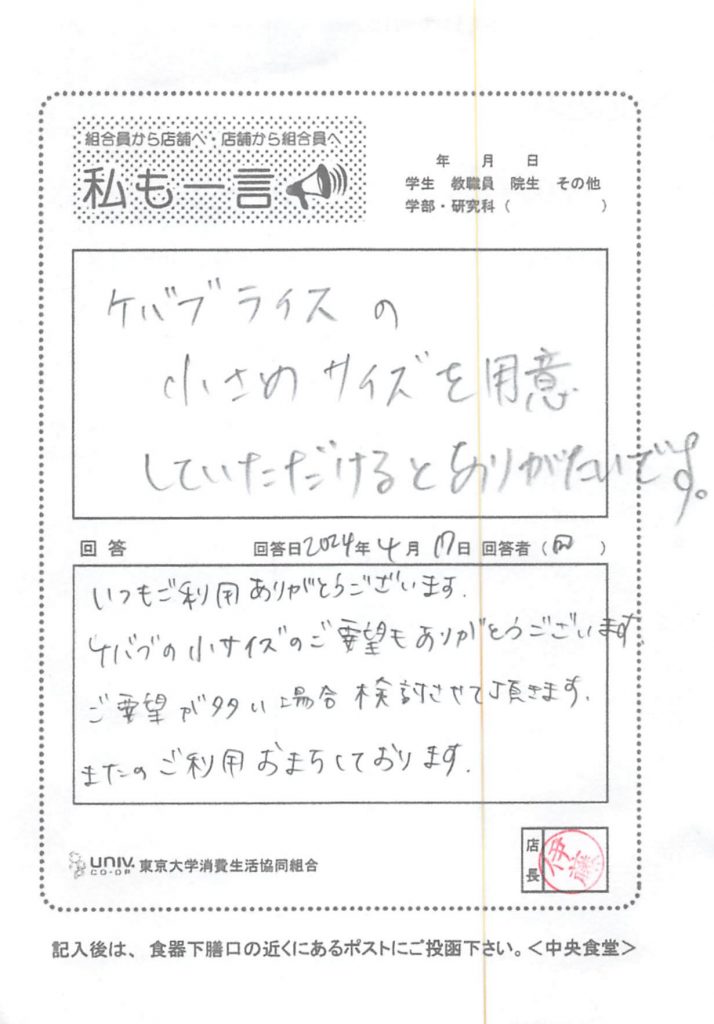 組合員から店舗へ・店舗から組合員へ
私も一言
年 月 日
学生 教職員 院生 その他
学部・研究科( )
ケバブライスの
小さめサイズを用意
していただけるとありがたいです。
回答 回答日2024年4月17日 回答者( )
いつもご利用ありがとうございます.
ケバブの小サイズのご要望もありがとうございます.
ご要望が多い場合検討させて頂きます.
またのご利用おまちしております.
UNIV. CO-OP 東京大学消費生活協同組合
店長 伊藤
記入後は、食器下膳口の近くにあるポストにご投函下さい。<中央食堂>